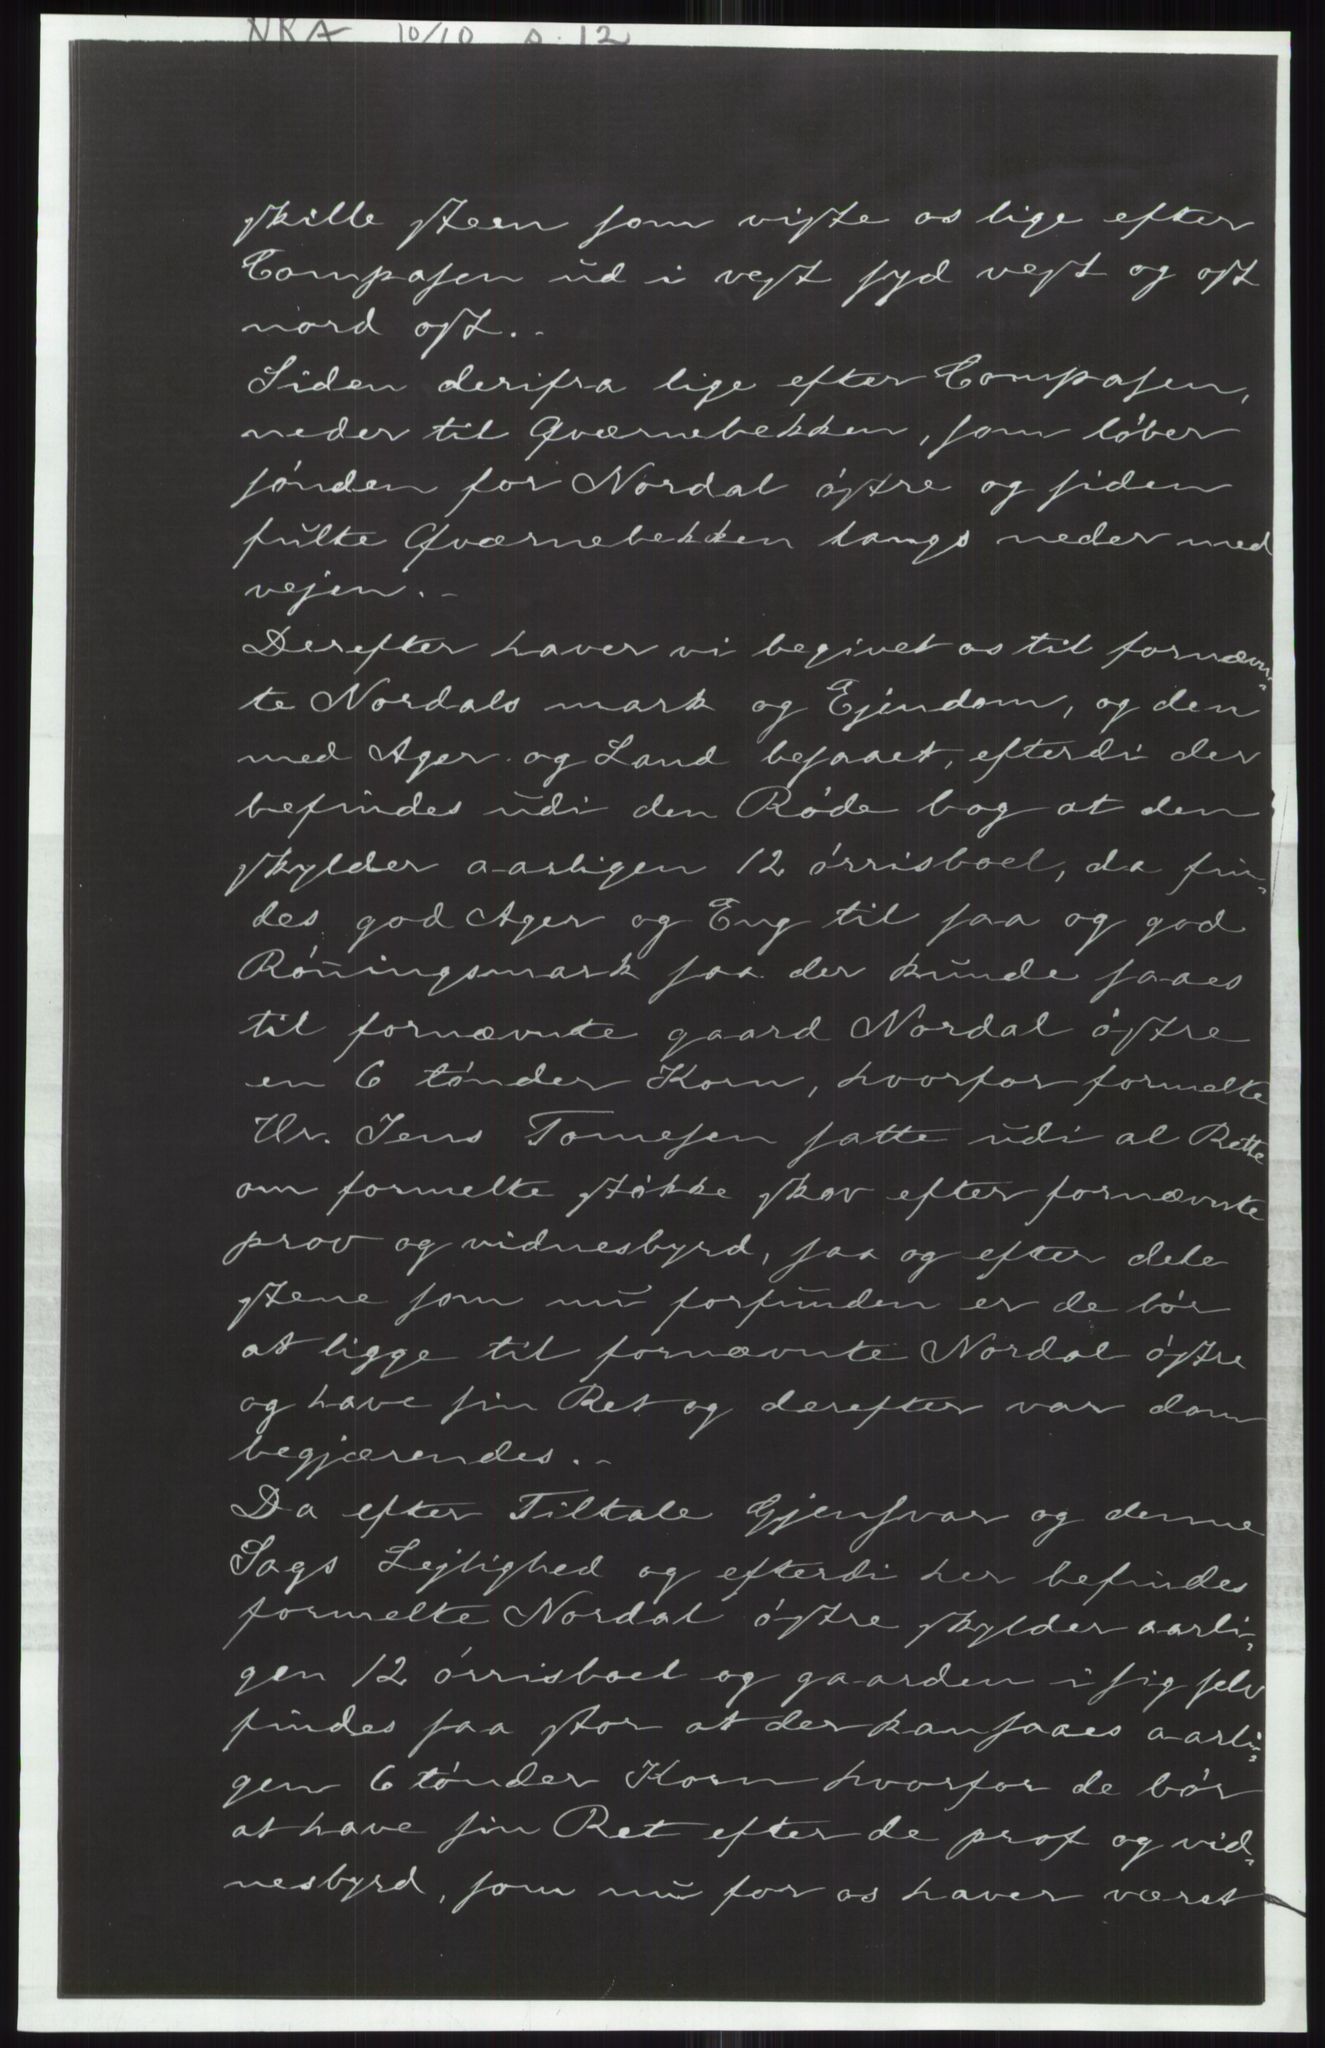 NRA 10/10 s. 12
skille steen som viste os lige efter
Compasen ud i vest syd vest og ost
nord ost.-
Siden derifra lige efter Compasen,
neder til Qværnebekken, som løber
sønden for Nordal østre og siden
fulte Qværnebekken langs neder med
vejen.-
Derefter haver vi begivet os til fornævn-
te Nordals mark og Ejendom, og den
med Ager og Land besaaet, efterdi der
befindes udi den Røde bog at den
skylder aarligen 12 ørrisboel, da fin-
des god Ager og Eng til saa og god
Røningsmark saa der kunde saaes
til fornævnte gaard Nordal østre
en 6 tønder Korn, hvorfor formelte
Hr. Jens Tomesen satte udi al Rette
om formelte støkke skov efter fornævnte
prov og vidnesbyrd, saa og efter dele
stene som nu forfunden er de bør
at ligge til fornævnte Nordal østre
og have sin Ret og derefter var dom
begjærendes.-
Da efter Tiltale Gjensvar og denne
Sags Lejlighed og efterdi her befindes
formelte Nordal østre skylder aarli-
gen 12 ørrisboel og gaarden i sig selv
findes saa stor at der kan saaes aarli-
gen 6 tønder Korn hvorfor de bør
at have sin Ret efter de prof og vid-
nesbyrd, som nu for os haver været